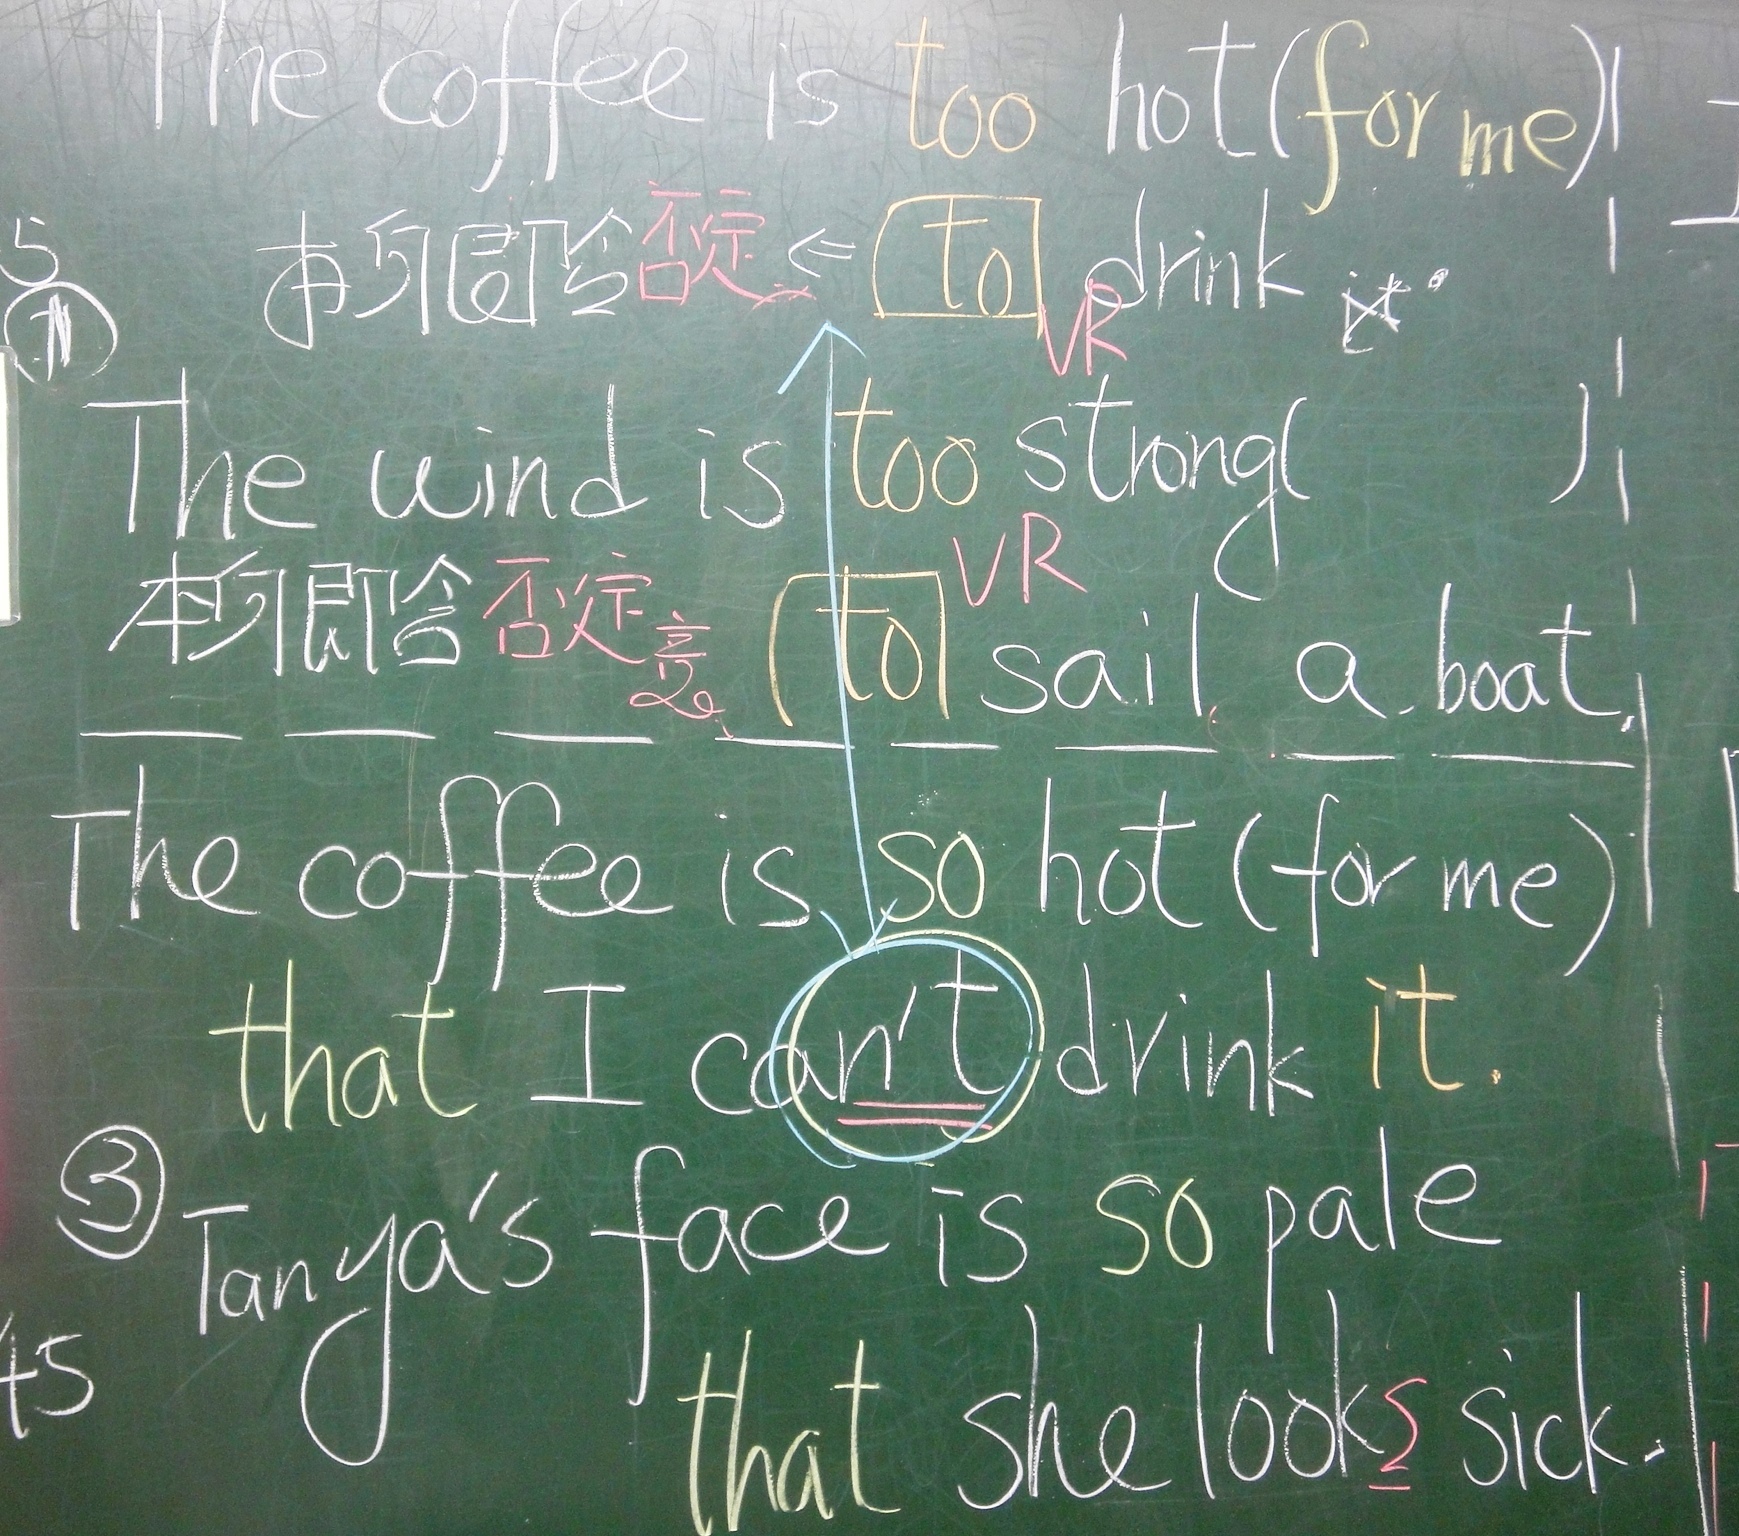 The coffee is too hot (for me)
5 本身即含否定 ⇐ to drink it.
① VR
The wind is too strong( )
VR
本身即含否定意 to sail a boat.
The coffee is so hot (for me)
that I can't drink it.
③ Tanya's face is so pale
45 that she looks sick.